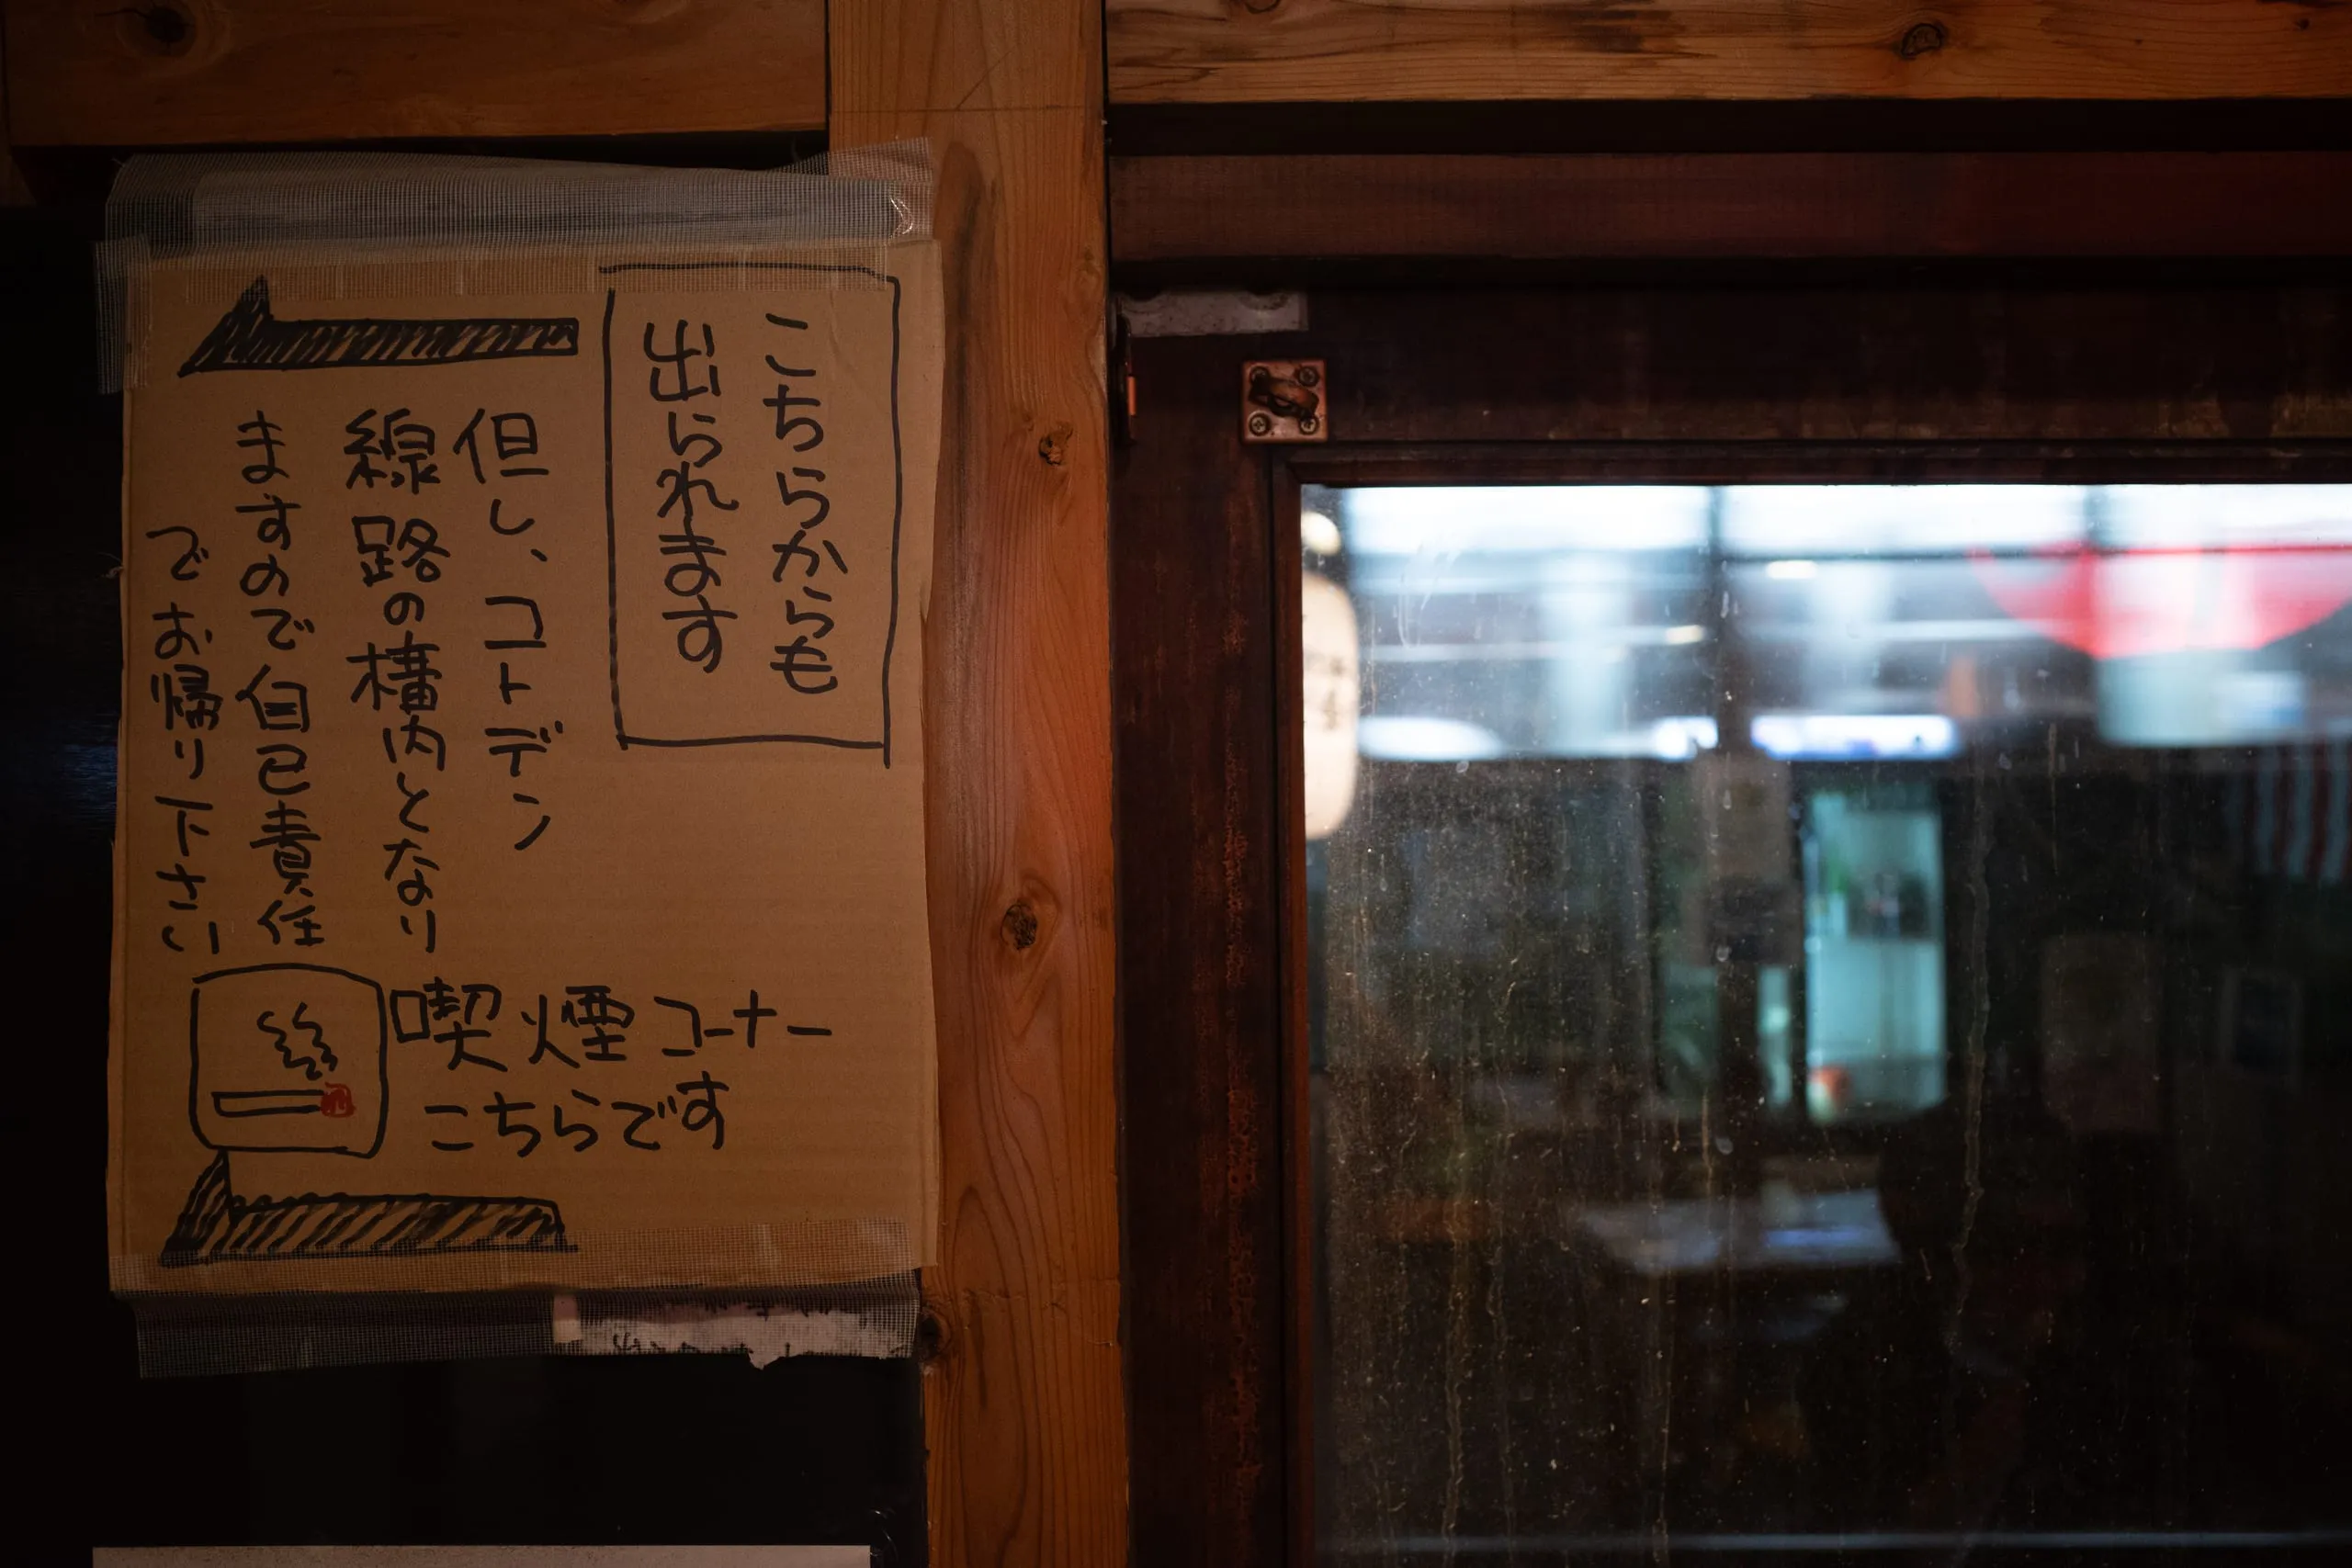 こちらからも
出られます
但し、コトデン
線路の構内となり
ますので自己責任
でお帰り下さい
喫煙コーナー
こちらです